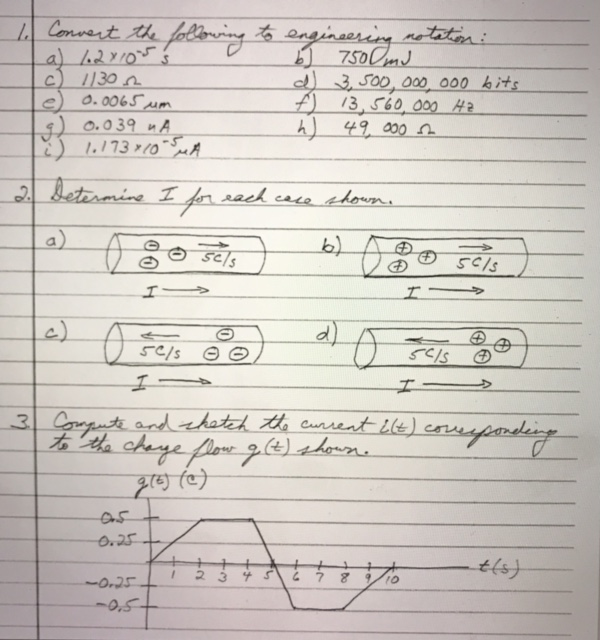 1. Convert the following to engineering notation:
a) 1.2×10⁻⁵ s b) 7500 mJ
c) 1130 Ω d) 3,500,000,000 bits
e) 0.0065 μm f) 13,560,000 Hz
g) 0.039 nA h) 49,000 Ω
i) 1.173×10⁻⁵ μA
2. Determine I for each case shown.
a) ⊖ ⊖ ⊖ → 5C/s b) ⊕ ⊕ ⊕ → 5C/s
I → I →
c) ← 5C/s ⊖ ⊖ ⊖ d) ← 5C/s ⊕ ⊕ ⊕
I → I →
3 Compute and sketch the current i(t) corresponding
to the charge flow q(t) shown.
q(t) (C)
0.5
0.25
1 2 3 4 5 6 7 8 9 10 t(s)
-0.25
-0.5